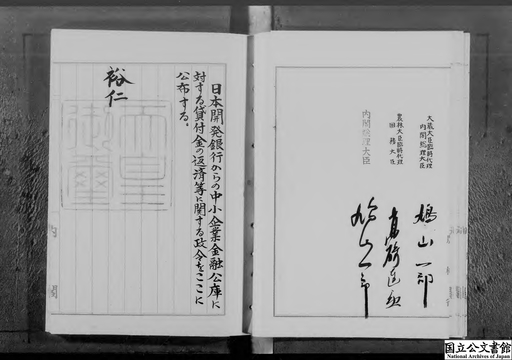 大蔵大臣臨時代理
内閣総理大臣
鳩山一郎
農林大臣臨時代理
国務大臣
高碕達之助
内閣総理大臣
鳩山一郎
日本開発銀行からの中小企業金融公庫に
対する貸付金の返済等に関する政令をここに
公布する。
裕仁
天皇
御璽
国立公文書館
National Archives of Japan